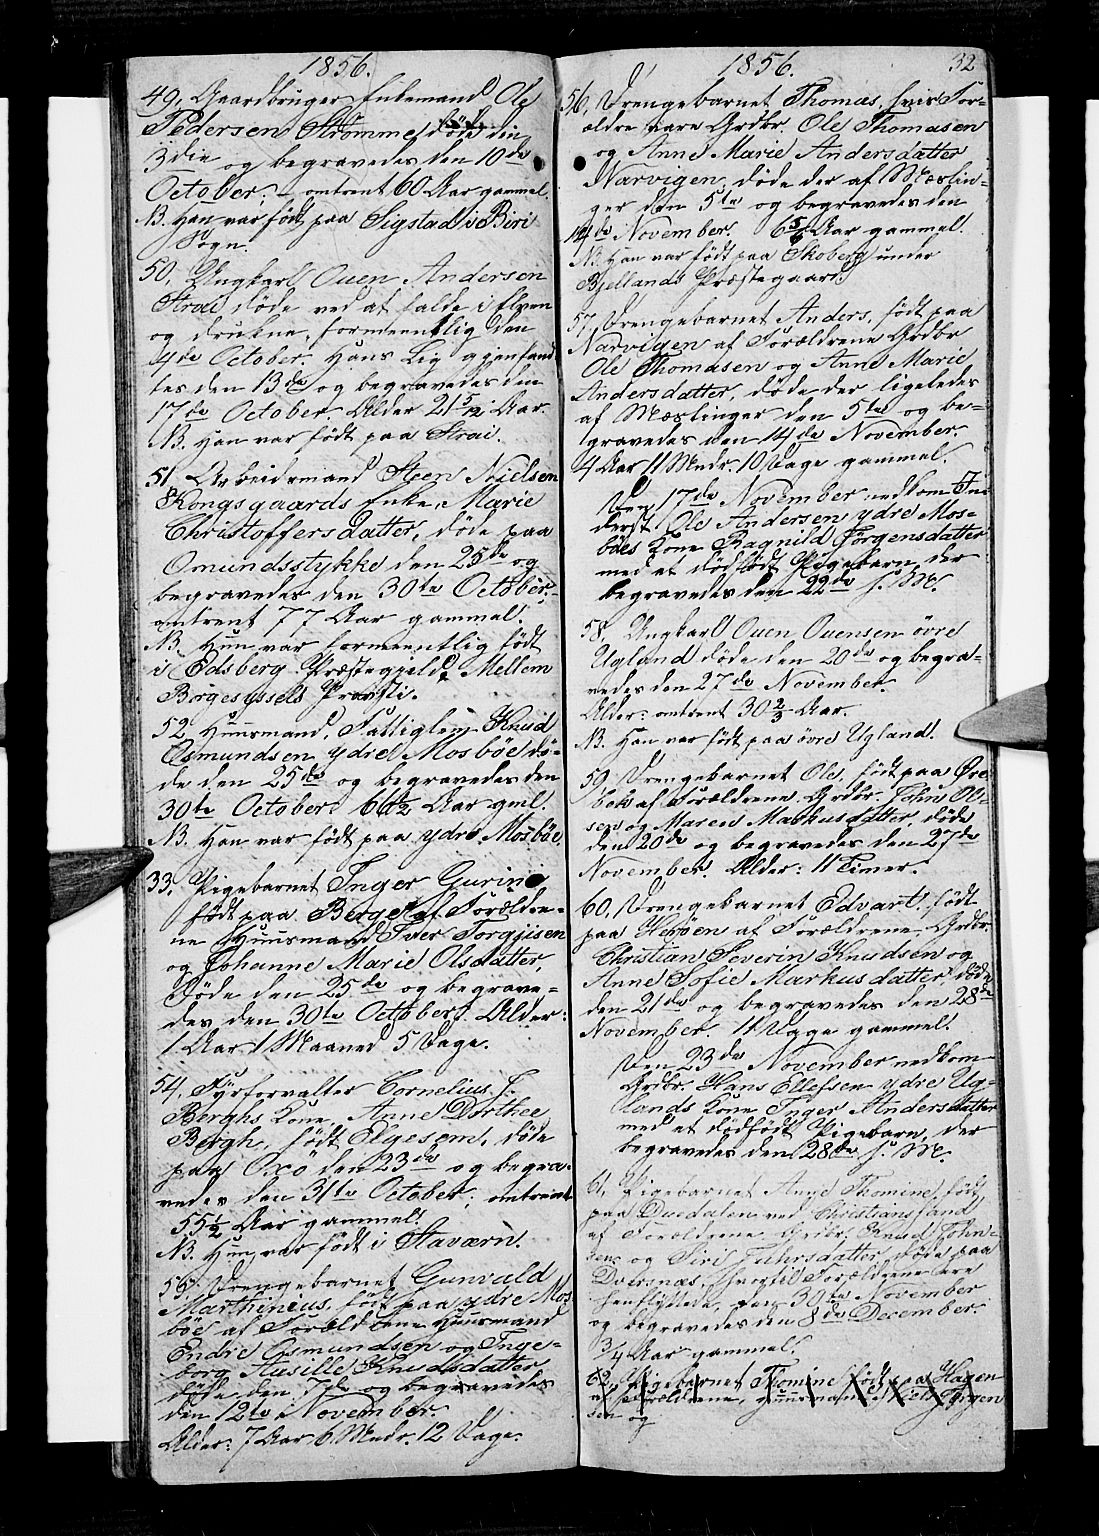 1856.
49, Gaardbruger Enkemand Ole
Pedersen Strømme, døde den
3die og begravedes den 10de
October; omtrent 60 Aar gammel.
NB. Han var født paa Sigstad i Biri
Sogn.
50, Ungkarl Ouen Andersen
Strai døde ved at falde i Elven
og drukne, formeentlig den
4de October. Hans Lig gjenfand-
tes den 13de og begravedes den
17de October. Alder 21 5/12 Aar.
NB. Han var født paa Strai.
51, Arbeidsmand Steen Nielsen
Kongsgaards Enke, Marie
Christoffersdatter, døde paa
Omundsstykke den 25de og
begravedes den 30te October,
omtrent 77 Aar gammel.
NB. Hun var formeentlig født
i Edsberg Præstegjeld, Mellem
Borgesyssels Provsti.
52, Huusmand, Fattiglem Knud
Osmundsen ydre Mosbøe dø-
de den 25de og begravedes den
30te October 66½ Aar gml.
NB. Han var født paa ydre Mosbøe,
33, Pigebarnet Inger Gurine
født paa Berge af Forældre-
ne Huusmand Iver Torgjusen
og Johanne Marie Olsdatter,
døde den 25de og begrave-
des den 30te October. Alder:
1 Aar 1 Maaned 5 Dage.
54, Fyrforvalter Cornelius J.
Berghs Kone, Anne Dorthee
Bergh, født Elgesem, døde
paa Oxø den 23de og begra-
vedes den 31te October, omtrent
55½ Aar gammel.
NB. Hun var født i Staværn.
55, Drengebarnet Gunvald
Marthinius, født paa ydre Mos-
bøe af Forældrene Huusmand
Endre Osmundsen og Inge-
borg Knudsdatter
døde den 7de og begravedes
den 12te November.
Alder: 7 Aar 6 Mndr. 12 Dage.
1856.
32
56, Drengebarnet Thomas, hvis For-
ældre vare Grdbr. Ole Thomasen
og Anne Marie Andersdatter
Narvigen, døde der af Mæslin-
ger den 5te og begravedes den
14de November. 6 5/6 Aar gammel.
NB. Han var født paa Skoberg under
Bjellands Præstegaard.
57, Drengebarnet Anders, født paa
Narvigen af Forældrene Grdbr.
Ole Thomasen og Anne Marie
Andersdatter, døde der ligeledes
af Mæslinger den 5te og be-
gravedes den 14de November.
4 Aar 11 Mndr. 10 Dage gammel.
Den 17de November nedkom In-
derst Ole Andersen ydre Mos-
bøes Kone Ragnild Jørgensdatter
med et dødfødt Pigebarn, der
begravedes den 22de s. M.
58, Ungkarl Ouen Ouensen øvre
Ugland døde den 20de og begra-
vedes den 27de November.
Alder: omtrent 30 2/3 Aar.
NB. Han var født paa øvre Ugland.
59, Drengebarnet Ole, født paa Øre-
bek af Forældrene Grdbr. John Ol-
sen og Maren Markusdatter, døde
den 20de og begravedes den 27de
November. Alder: 11 Timer.
60, Drengebarnet Edvart, født
paa Herøen af Forældrene Grdbr.
Christian Severin Knudsen og
Anne Sofie Markusdatter, døde
den 21de og begravedes den 28de
November. 11 Dage gammel.
Den 23de November nedkom
Grdbr. Hans Ellefsen ydre Ug-
lands Kone Inger Andersdatter
med et dødfødt Pigebarn, der
begravedes den 28de s. M.
61, Pigebarnet Anne Thomine, født
paa Duedalen ved Christiansand
af Forældrene Grdbr. Knud John-
sens og Siri døde paa
Dversnæs, hvortil Forældrene ere
henflyttede, den 30te November
og begravedes den 8de December.
3/4 Aar gammel.
62, Pigebarnet Thomine født paa Hagen
af Forældrene, Huusmand Niels Jørgen-
sen og